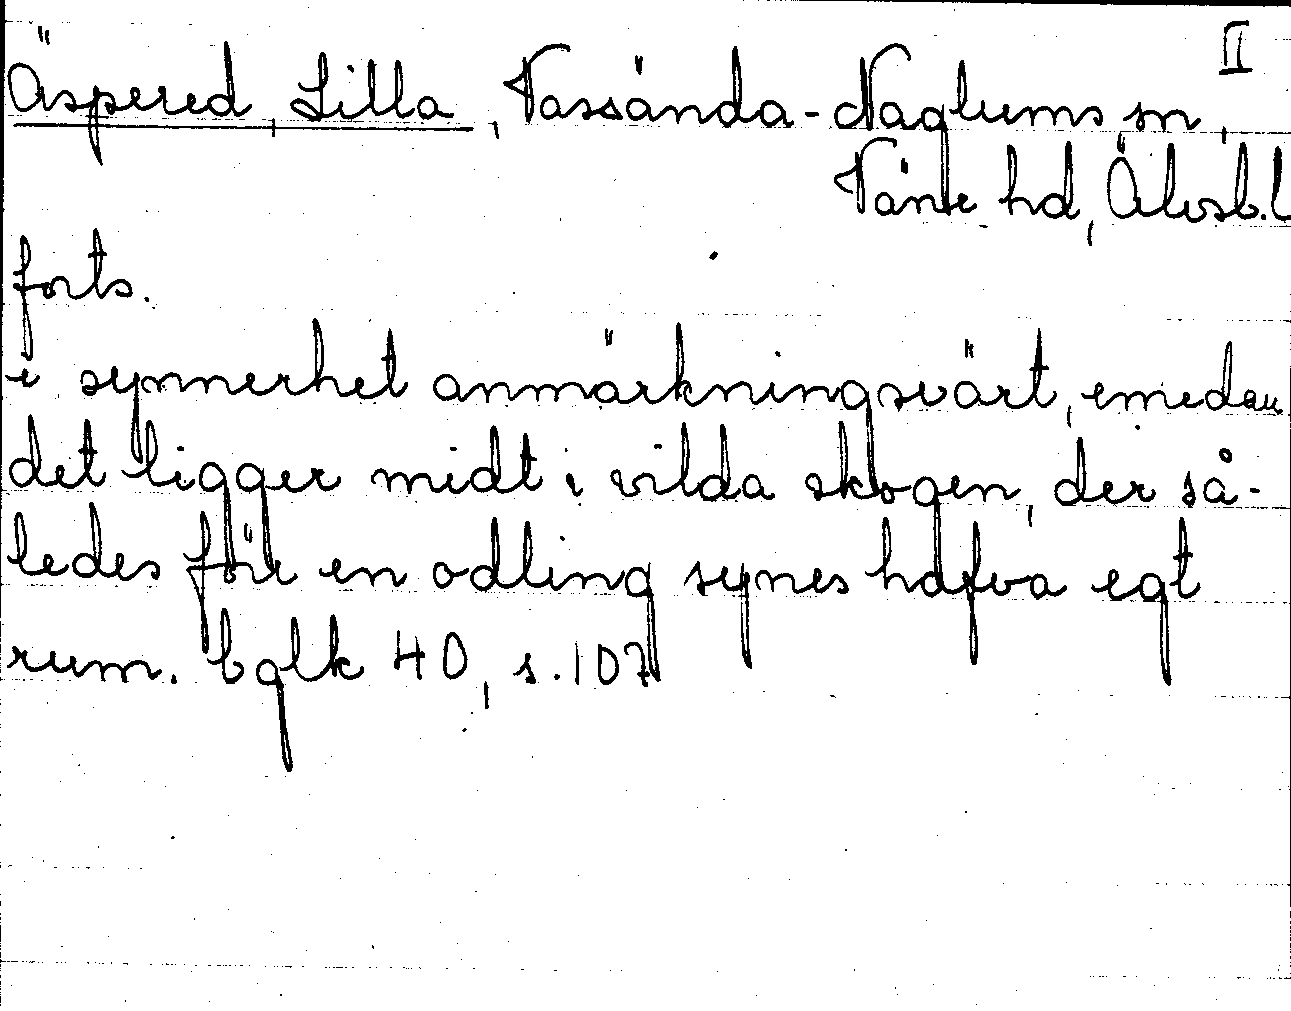 II
Äspered, Lilla, Vassända-Naglums sn,
Väne hd, Älvsb. l
forts.
i synnerhet anmärkningsvärt, emedan
det ligger midt i vilda skogen, der så-
ledes förr en odling synes hafva egt
rum. bglk 40, s. 107